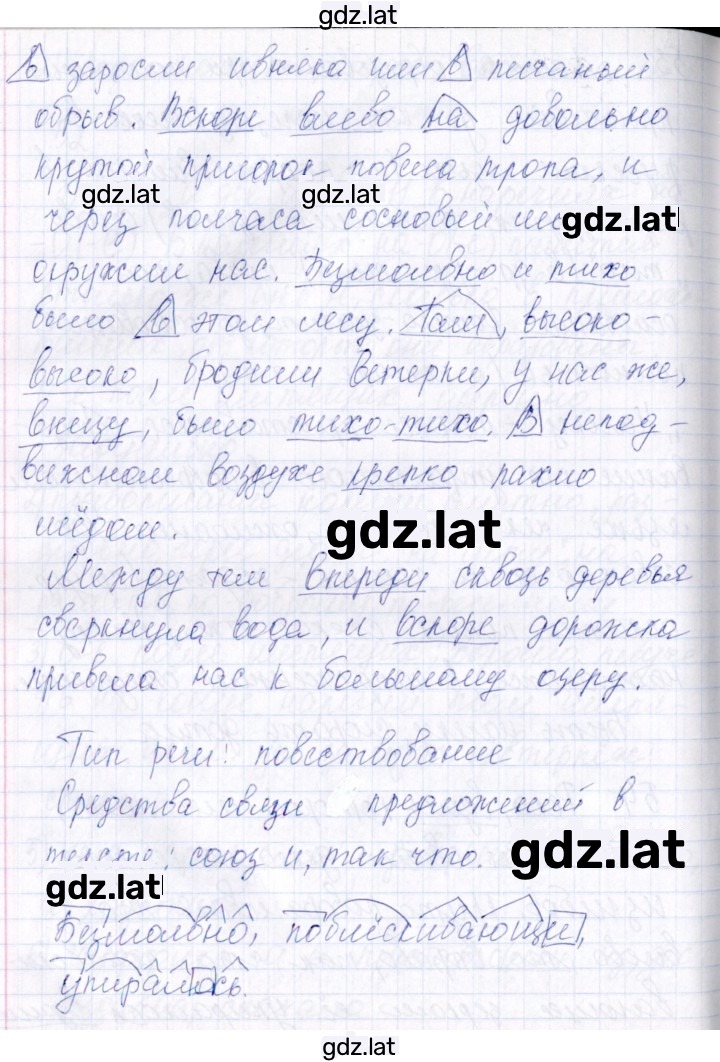 gdz.lat
в заросли ивняка или в песчаный
обрыв. Вскоре влево на довольно
крутой пригорок повела тропа, и
gdz.lat gdz.lat
gdz.lat
через полчаса сосновый
окружил нас. Безмолвно и тихо
было в этом лесу. Там, высоко-
высоко, бродили ветерки, у нас же,
внизу, было тихо-тихо. В непод-
вижном воздухе крепко пахло
мёдом.
gdz.lat
Между тем впереди сквозь деревья
сверкнула вода, и вскоре дорожка
привела нас к большому озеру.
Тип речи: повествование
Средства связи предложений в
тексте: союз и, так что.
gdz.lat
gdz.lat
Безмолвно, поблёскивающие,
упиралось.
gdz.lat